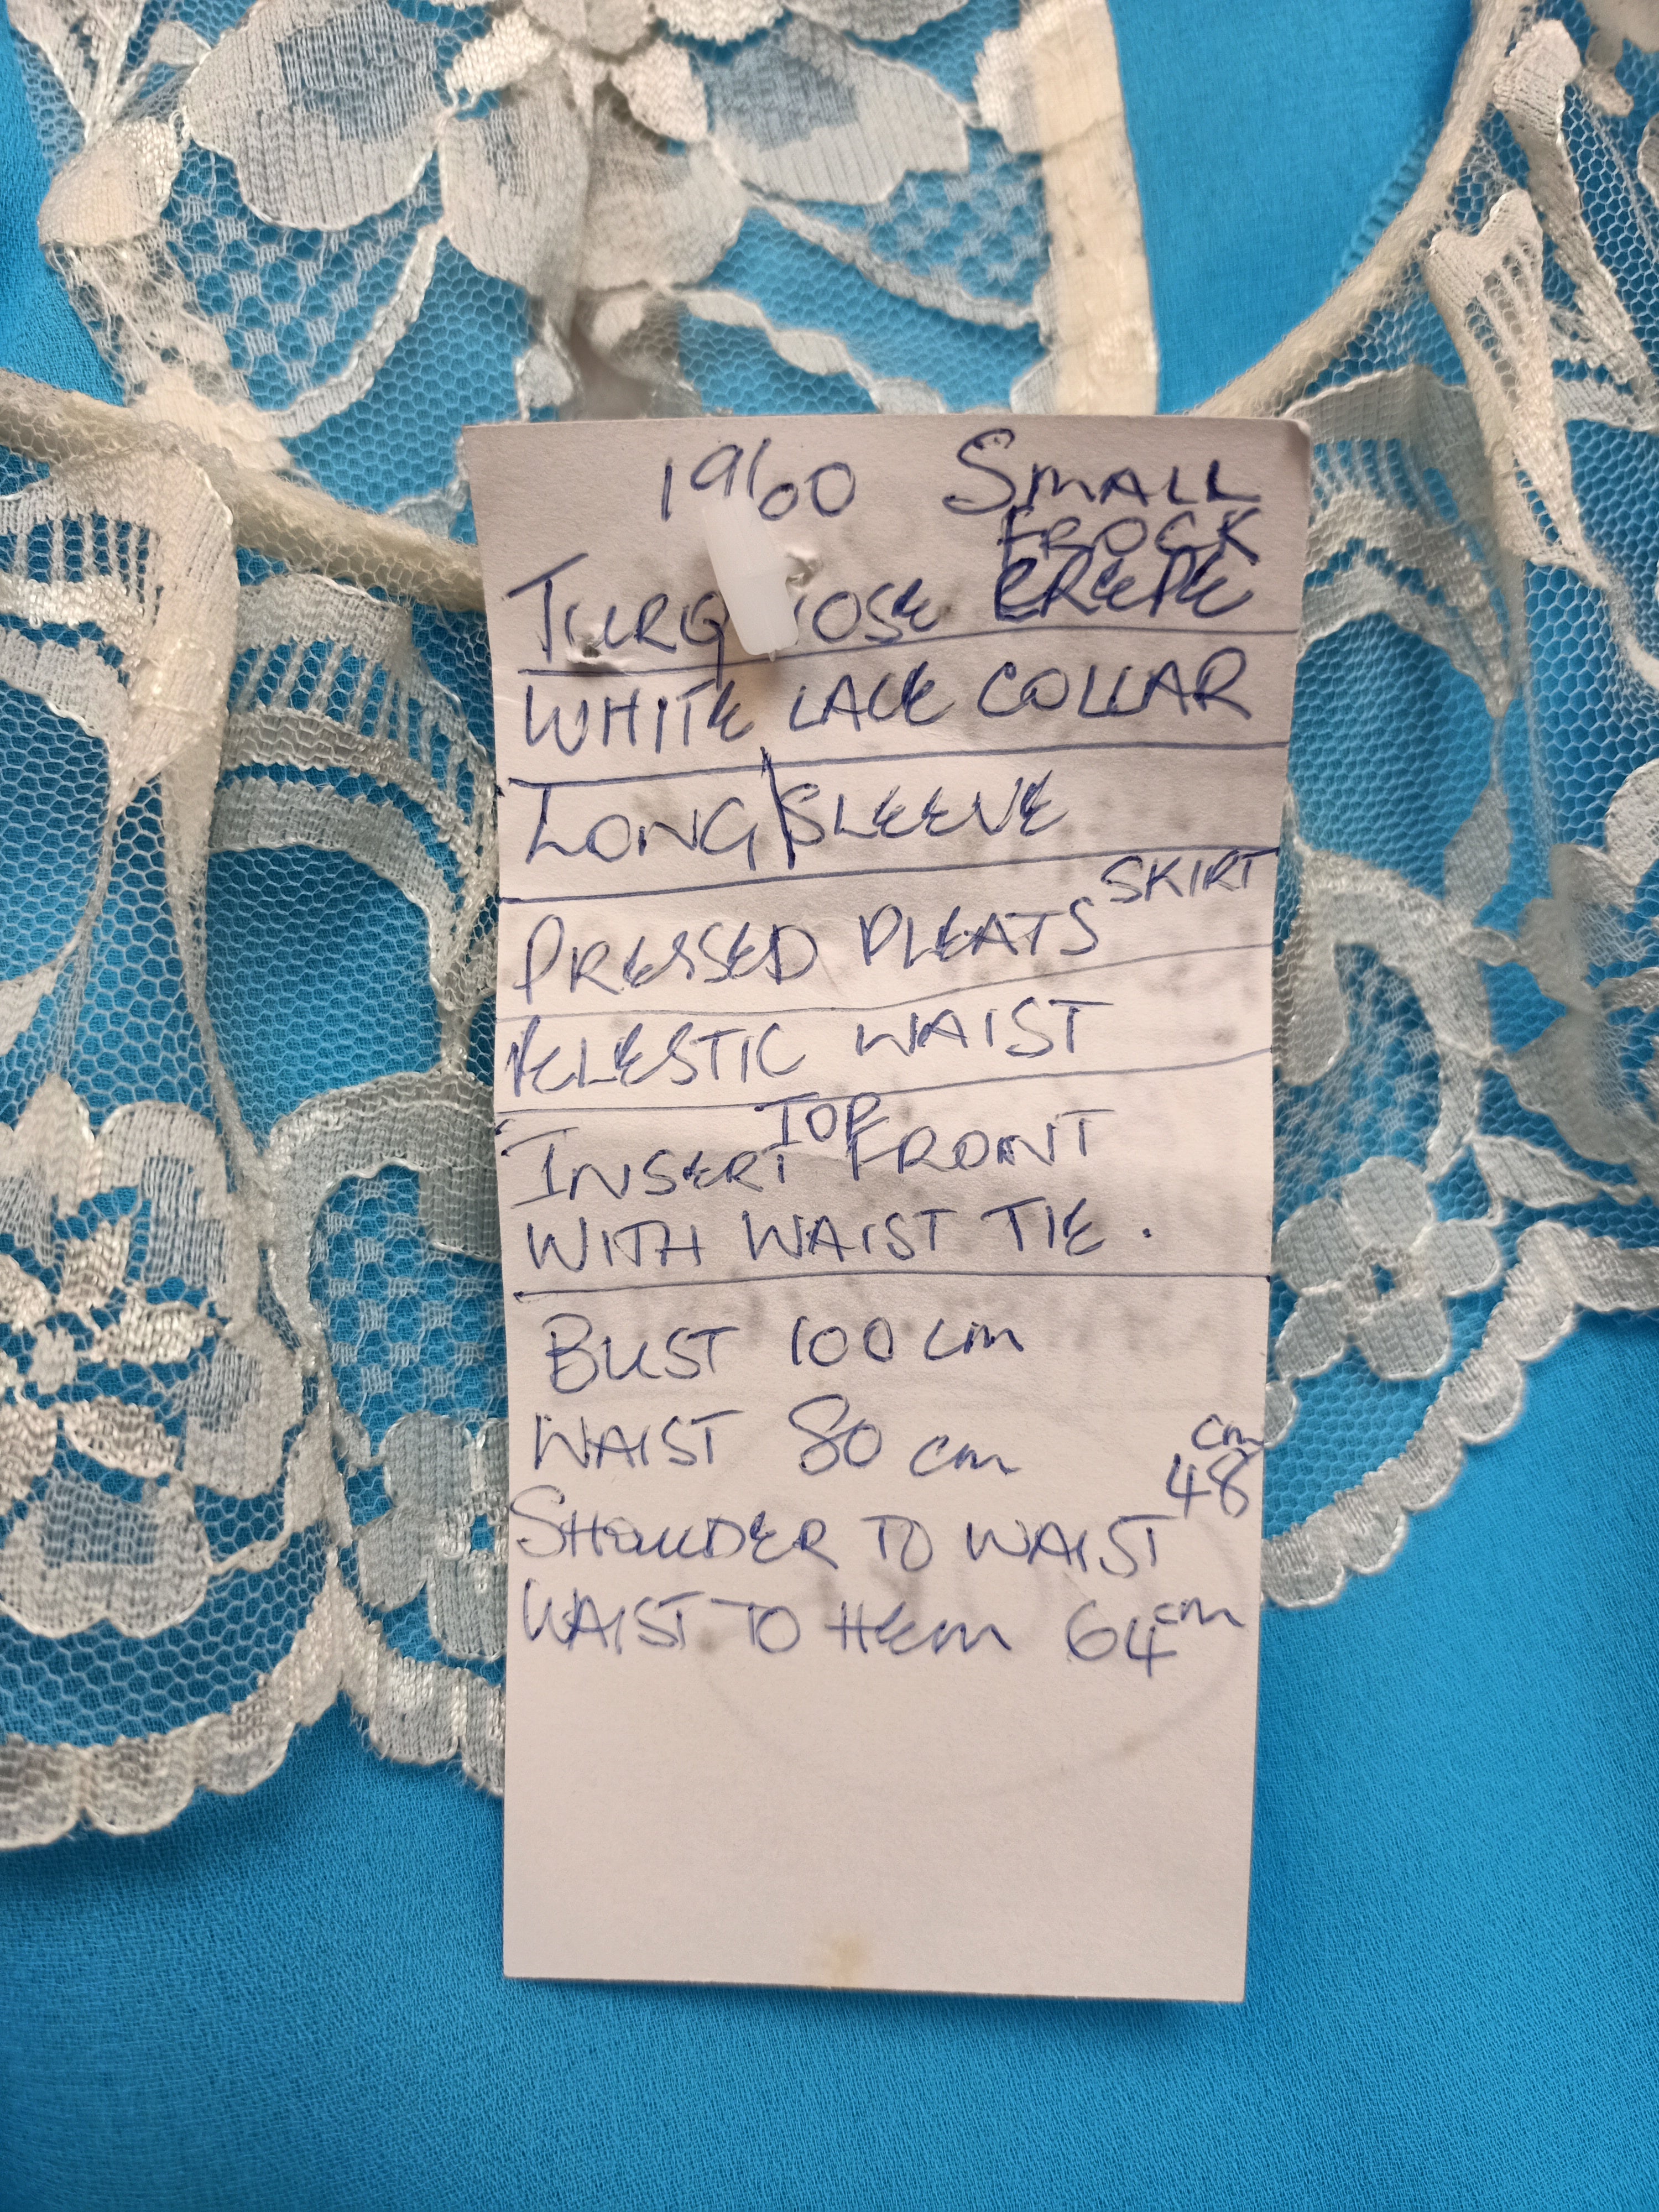 1960 SMALL
FROCK
TURQ IOSE CREPE
WHITE LACE COLLAR
LONG SLEEVE
PRESSED PLEATS SKIRT
ELESTIC WAIST
INSERT TOP FRONT
WITH WAIST TIE.
BUST 100 cm
WAIST 80 cm
SHOULDER TO WAIST 48 cm
WAIST TO HEM 64 cm